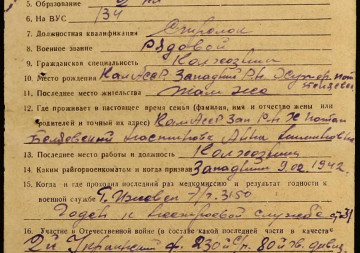 5. Образование 2 кл
6. На ВУС 134
7. Должностная квалификация Стрелок
8. Военное звание Рядовой
9. Гражданская специальность Колхозник
10. Место рождения Западный Р-н Хутор
11. Последнее место жительства Там же
12. Где проживает в настоящее время семья (фамилия, имя и отчество жены или
родителей и точный адрес) Зап Р-н Х
Анна
13. Последнее место работы и должность Колхозник
14. Каким райгорвоенкоматом и когда призван Западный 9.02.1942.
15. Когда и где проходил последний раз медкомиссию и результат годности к
военной службе Г. п/п. 3150
Годен к строевой службе ст 31
16. Участие в Отечественной войне (в какой последней части и в качестве
2й Украинский ф. 230 й С/п. 80й Гв. дивиз.